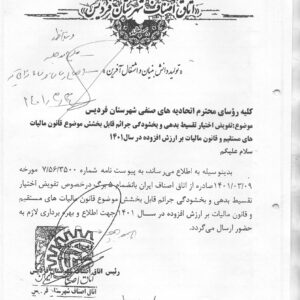 اتاق اصناف شهرستان فردیس
« تولید، دانش بنیان و اشتغال آفرین »
کلیه رؤسای محترم اتحادیه های صنفی شهرستان فردیس
موضوع:تفویض اختیار تقسیط بدهی و بخشودگی جرائم قابل بخشش موضوع قانون مالیات های
مستقیم و قانون مالیات بر ارزش افزوده در سال۱۴۰۱
سلام علیکم
بدینو سیله به اطلاع می رساند، به پیوست نامه شماره ۷/۵۶/۳۵۰۰ مورخه
۱۴۰۱/۰۳/۰۹ صادره از اتاق اصناف ایران بانضمام ۵ برگ درخصوص تفویض اختیار
تقسیط بدهی و بخشودگی جرائم قابل بخشش موضوع قانون مالیات های مستقیم
و قانون مالیات بر ارزش افزوده در سـال ۱۴۰۱ جهت اطلاع و بهره برداری لازم به
حضور ارسال می‌گردد.
رئیس اتاق اصناف شهرستان فردیس
اتاق اصناف شهرستان فردیس